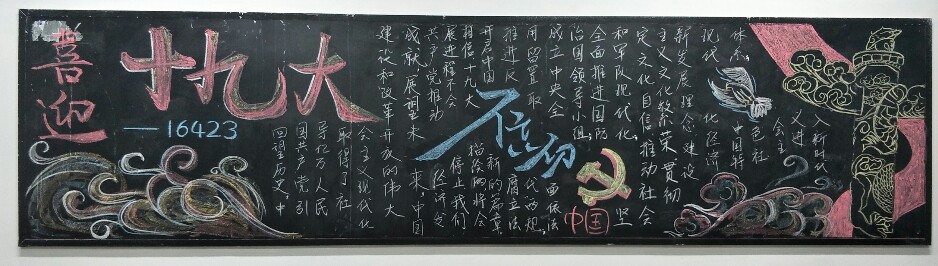 喜迎
十九大
—16423
回望历史,中
国共产党引
导亿万人民
取得了社
会主义现代化
建设和改革开放的伟大
成就,展望未来,中国
共产党推动经济发
展进程不会停止,我们
相信十九大描绘将会
开启中国新的篇章
推进反腐立法
用留置取代两规,
成立中央全面依法
治国领导小组,
全面推进国防
和军队现代化,坚
定文化自信,推动社会
主义文化繁荣 贯彻
新发展理念 建设
现代化经济
体系,
中国特
色社
会主
义进
入新时代
不忘初
中国